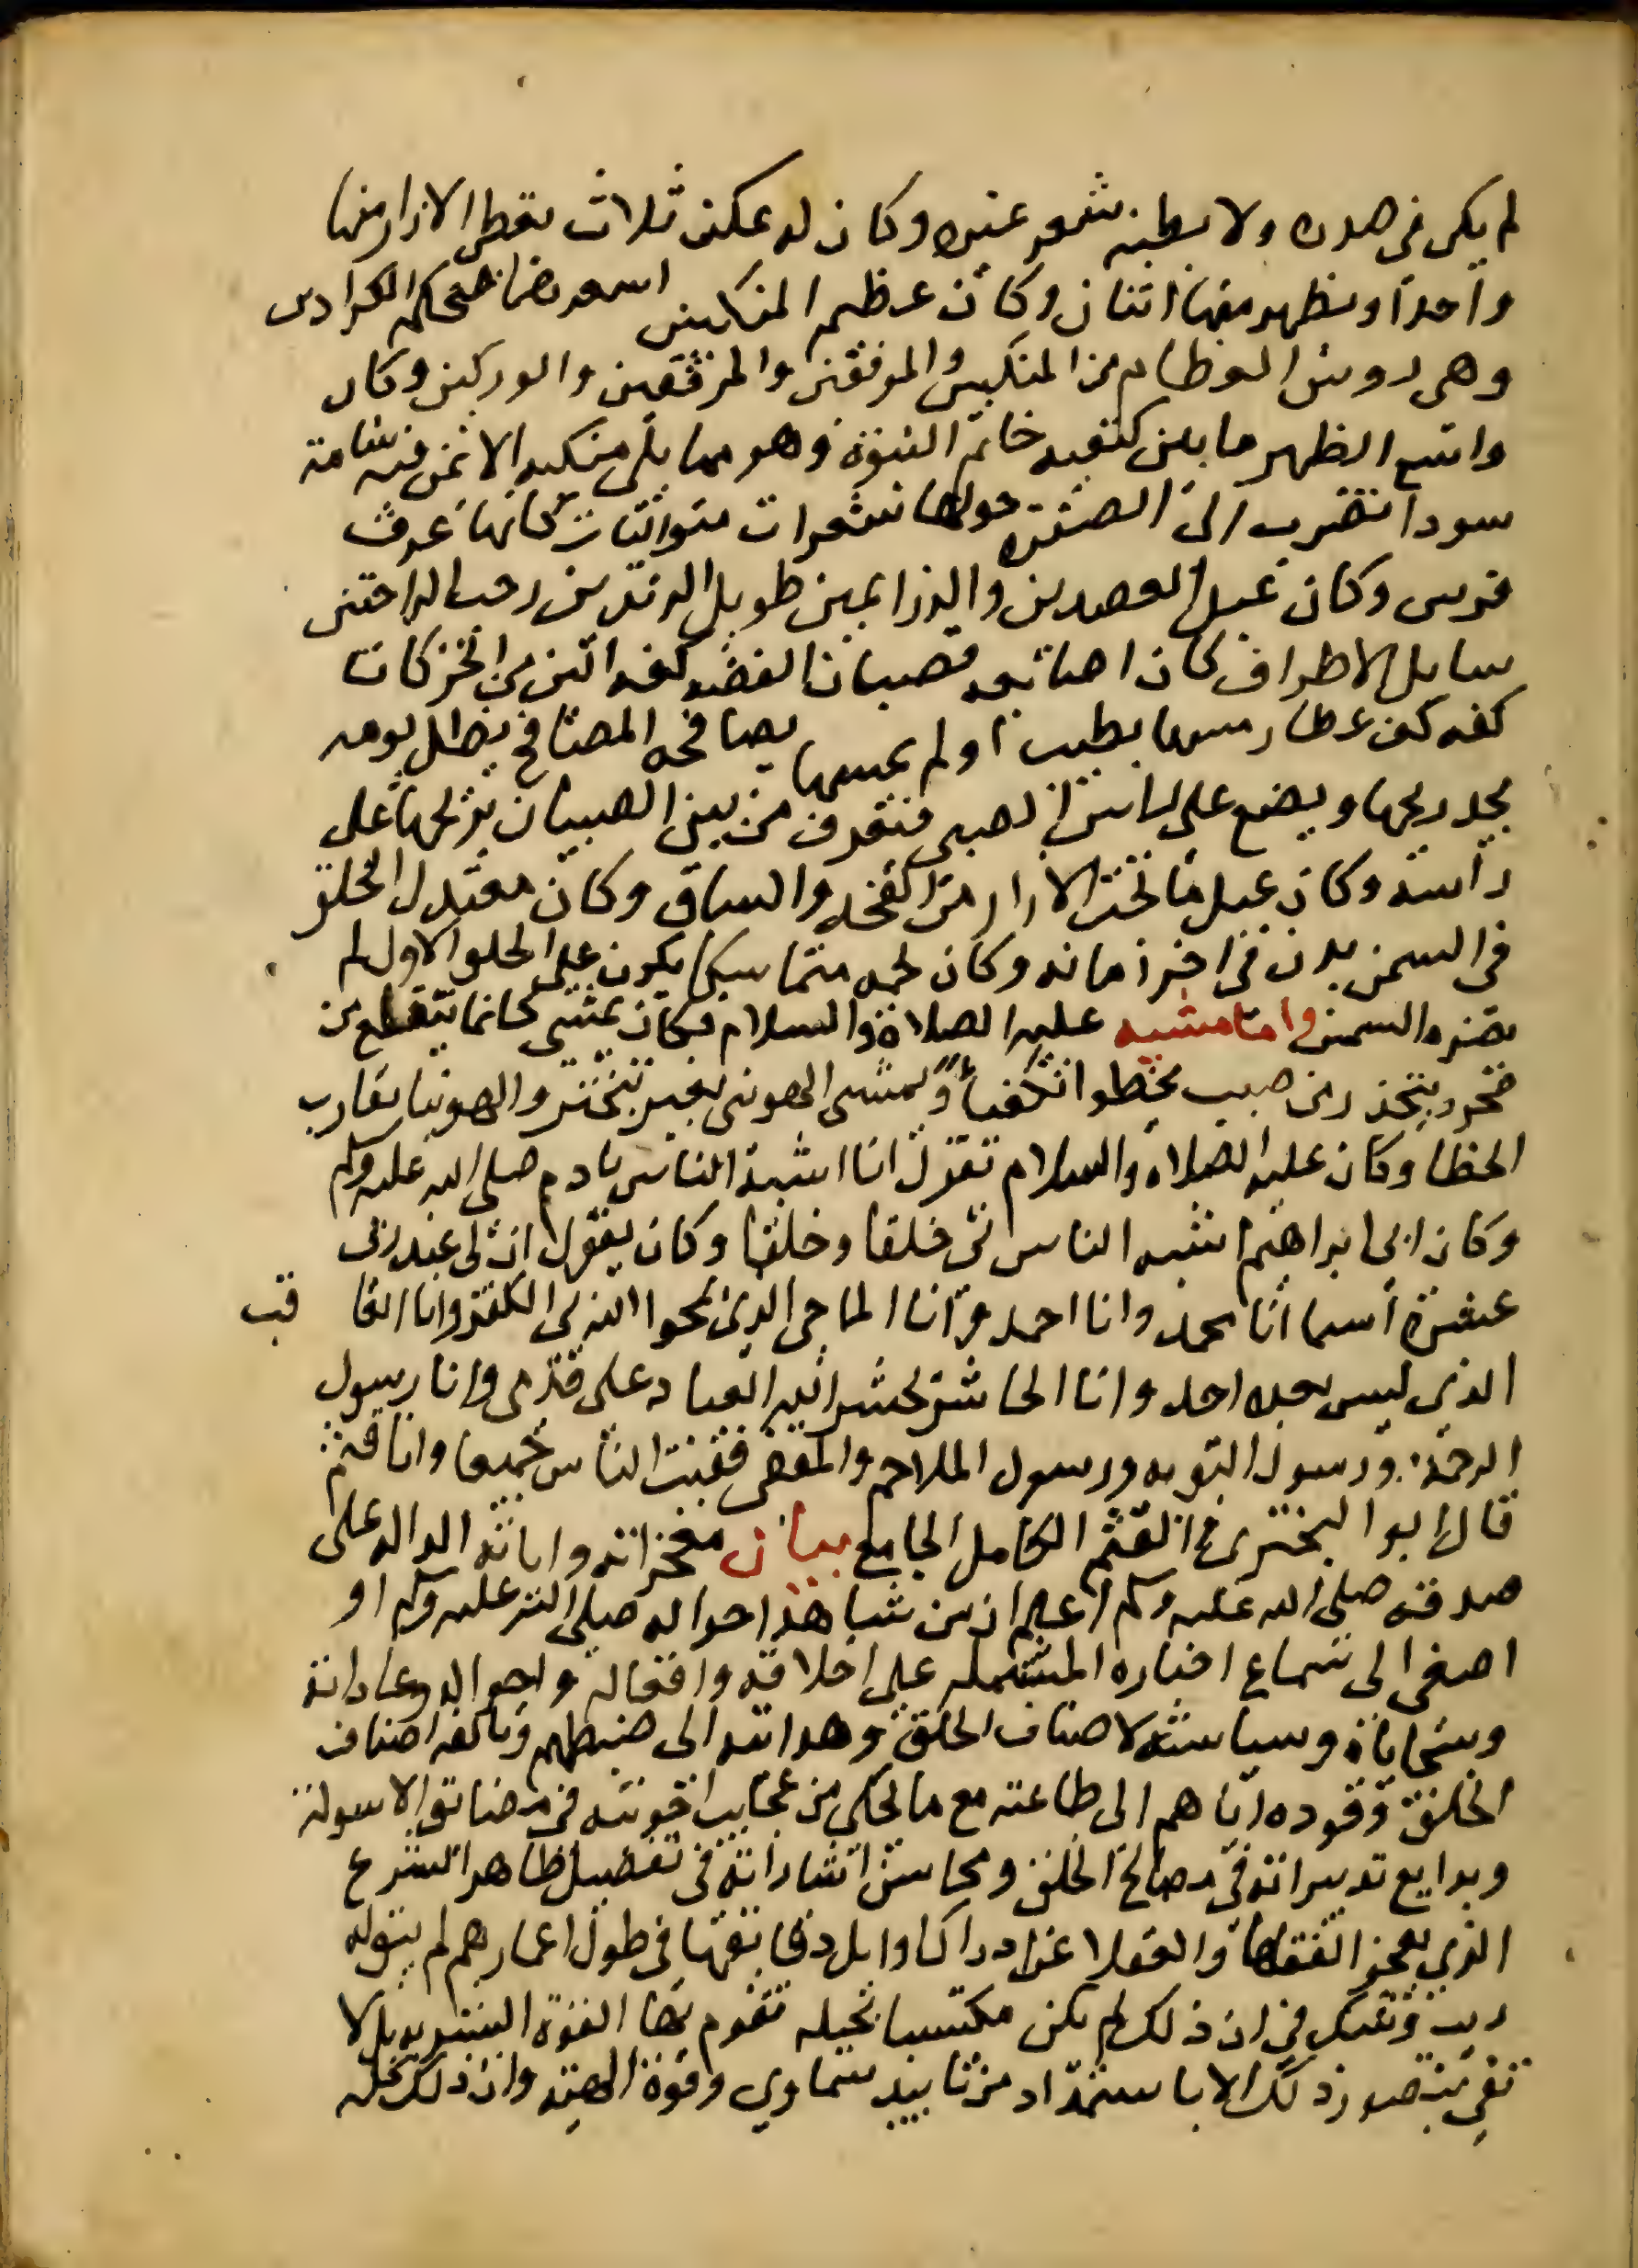 لم يكن في صدره ولا بطنه شعر غيره وكان له عكن ثلاث يغطي الازار منها
واحدا ويظهر منها اثنان وكان عظيم المنكبين اشعرهما ضخم الكراديس
وهي روس العظام من المنكبين والمرفقين والمرفقين والوركين وكان
واسع الظهر ما بين كتفيه خاتم النبوة وهو مما يلي منكبه الايمن فيه شامة
سودا تضرب الى الصفرة حولها شعرات متواليات كانها عرف
فرس وكان عبل العضدين والذراعين طويل الزندين رحب الراحتين
سايل الاطراف كان اصابعه قضبان الفضة كفه الين من الخز كان
كفه كف عطار مسها بطيب او لم يمسها يصافحه المصافح يظل يومه
يجد ريحها ويضع على راس الصبي فيعرف من بين الصبيان بريحها على
راسه وكان عبل ما تحت الازار من الفخذ والساق وكان معتدل الخلق
في السمن بدن في اخر زمانه وكان لحمه متماسكا يكون على الخلق الاول لم
يضره السمن واما مشيه عليه الصلاة والسلام فكان يمشي كانما يتقلع من
صخر ويتحدر من صبب يخطوا تكفيا ويمشي الهوينى بغير تبختر والهوينا تقارب
الخطا وكان عليه الصلاة والسلام يقول انا اشبه الناس بادم صلى الله عليه وسلم
وكان ابي ابراهيم اشبه الناس بي خلقا وخلقا وكان يقول ان لي عند ربي
عشرة اسما انا محمد وانا احمد وانا الماحي الذي يمحوا الله بي الكفر وانا العا قب
الذي ليس بعده احد وانا الحاشر يحشر الله العباد على قدمي وانا رسول
الرحمة ورسول التوبة ورسول الملاحم والمقفي قفيت الناس جميعا وانا قثم
قال ابو البختري والقثم الكامل الجامع بيان معجزاته واياته الدالة على
صدقه صلى الله عليه وسلم اعلم ان من شاهد احواله صلى الله عليه وسلم او
اصغى الى سماع اخباره المشتملة على اخلاقه وافعاله واحواله وعاداته
وسجاياه وسياسته لاصناف الخلق وهدايته الى ضبطهم وتالفه اصناف
الخلق وقوده اياهم الى طاعته مع ما يحكى من عجايب اجوبته في مضايق الاسولة
وبدايع تدبيراته في مصالح الخلق ومحاسن اشاراته في تفصيل ظاهر الشرع
الذي يعجز الفقها والعقلا عن ادراك اوايل دقايقها في طول اعمارهم لم يبق له
ريب وشك في ان ذلك لم يكن مكتسبا بحيلة تقوم بها القوة البشرية بل لا
يتصور ذلك الا باستمداد من تاييد سماوي وقوة الهية وان ذلك كله